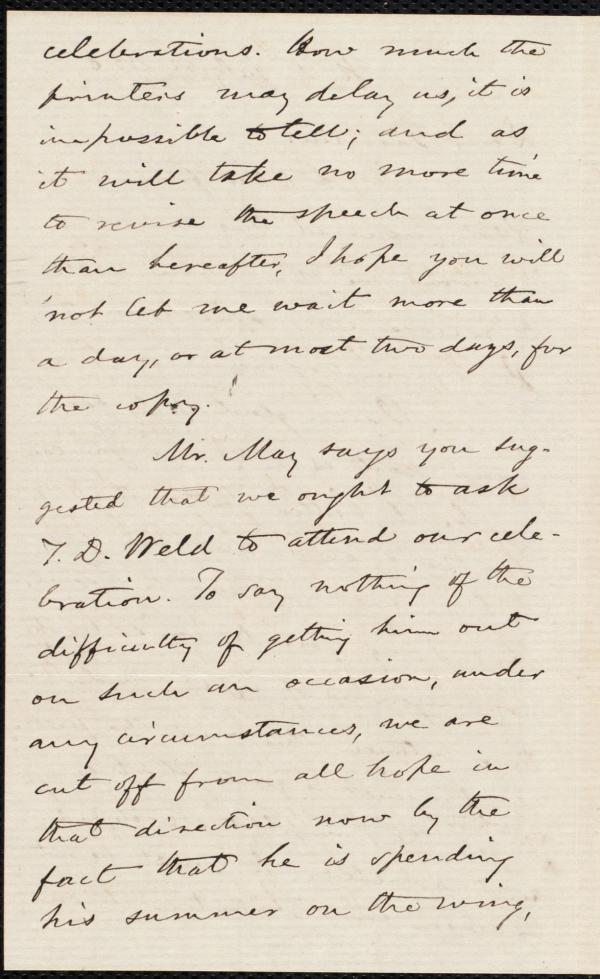 celebrations. How much the
printers may delay us, it is
impossible to tell; and as
it will take no more time
to revise the speech at once
than hereafter, I hope you will
not let me wait more than
a day, or at most two days, for
the copy.
Mr. May says you sug-
gested that we ought to ask
T. D. Weld to attend our cele-
bration. To say nothing of the
difficulty of getting him out
on such an occasion, under
any circumstances, we are
cut off from all hope in
that direction now by the
fact that he is spending
his summer on the wing,